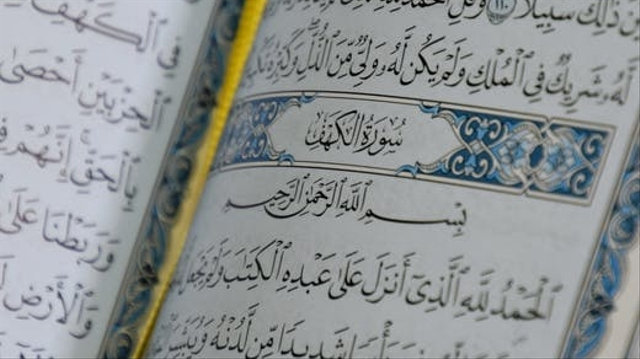 ذَٰلِكَ سَبِيلًا ١١٠ وَقُلِ ٱلْحَمْدُ لِلَّهِ
لَّهُۥ شَرِيكٌ فِي ٱلْمُلْكِ وَلَمْ يَكُن لَّهُۥ وَلِيٌّ مِّنَ ٱلذُّلِّ وَكَبِّرْهُ
سُورَةُ الكَهْفِ
بِسْمِ ٱللَّهِ ٱلرَّحْمَٰنِ ٱلرَّحِيمِ
ٱلْحَمْدُ لِلَّهِ ٱلَّذِيٓ أَنزَلَ عَلَىٰ عَبْدِهِ ٱلْكِتَٰبَ وَلَمْ يَجْعَل
شَدِيدًا مِّن لَّدُنْهُ
ٱلْكَهْفِ
ٱلْحِزْبَيْنِ أَحْصَىٰ
بِٱلْحَقِّ إِنَّهُمْ
وَرَبَطْنَا عَلَىٰ
وَٱلْأَرْضِ